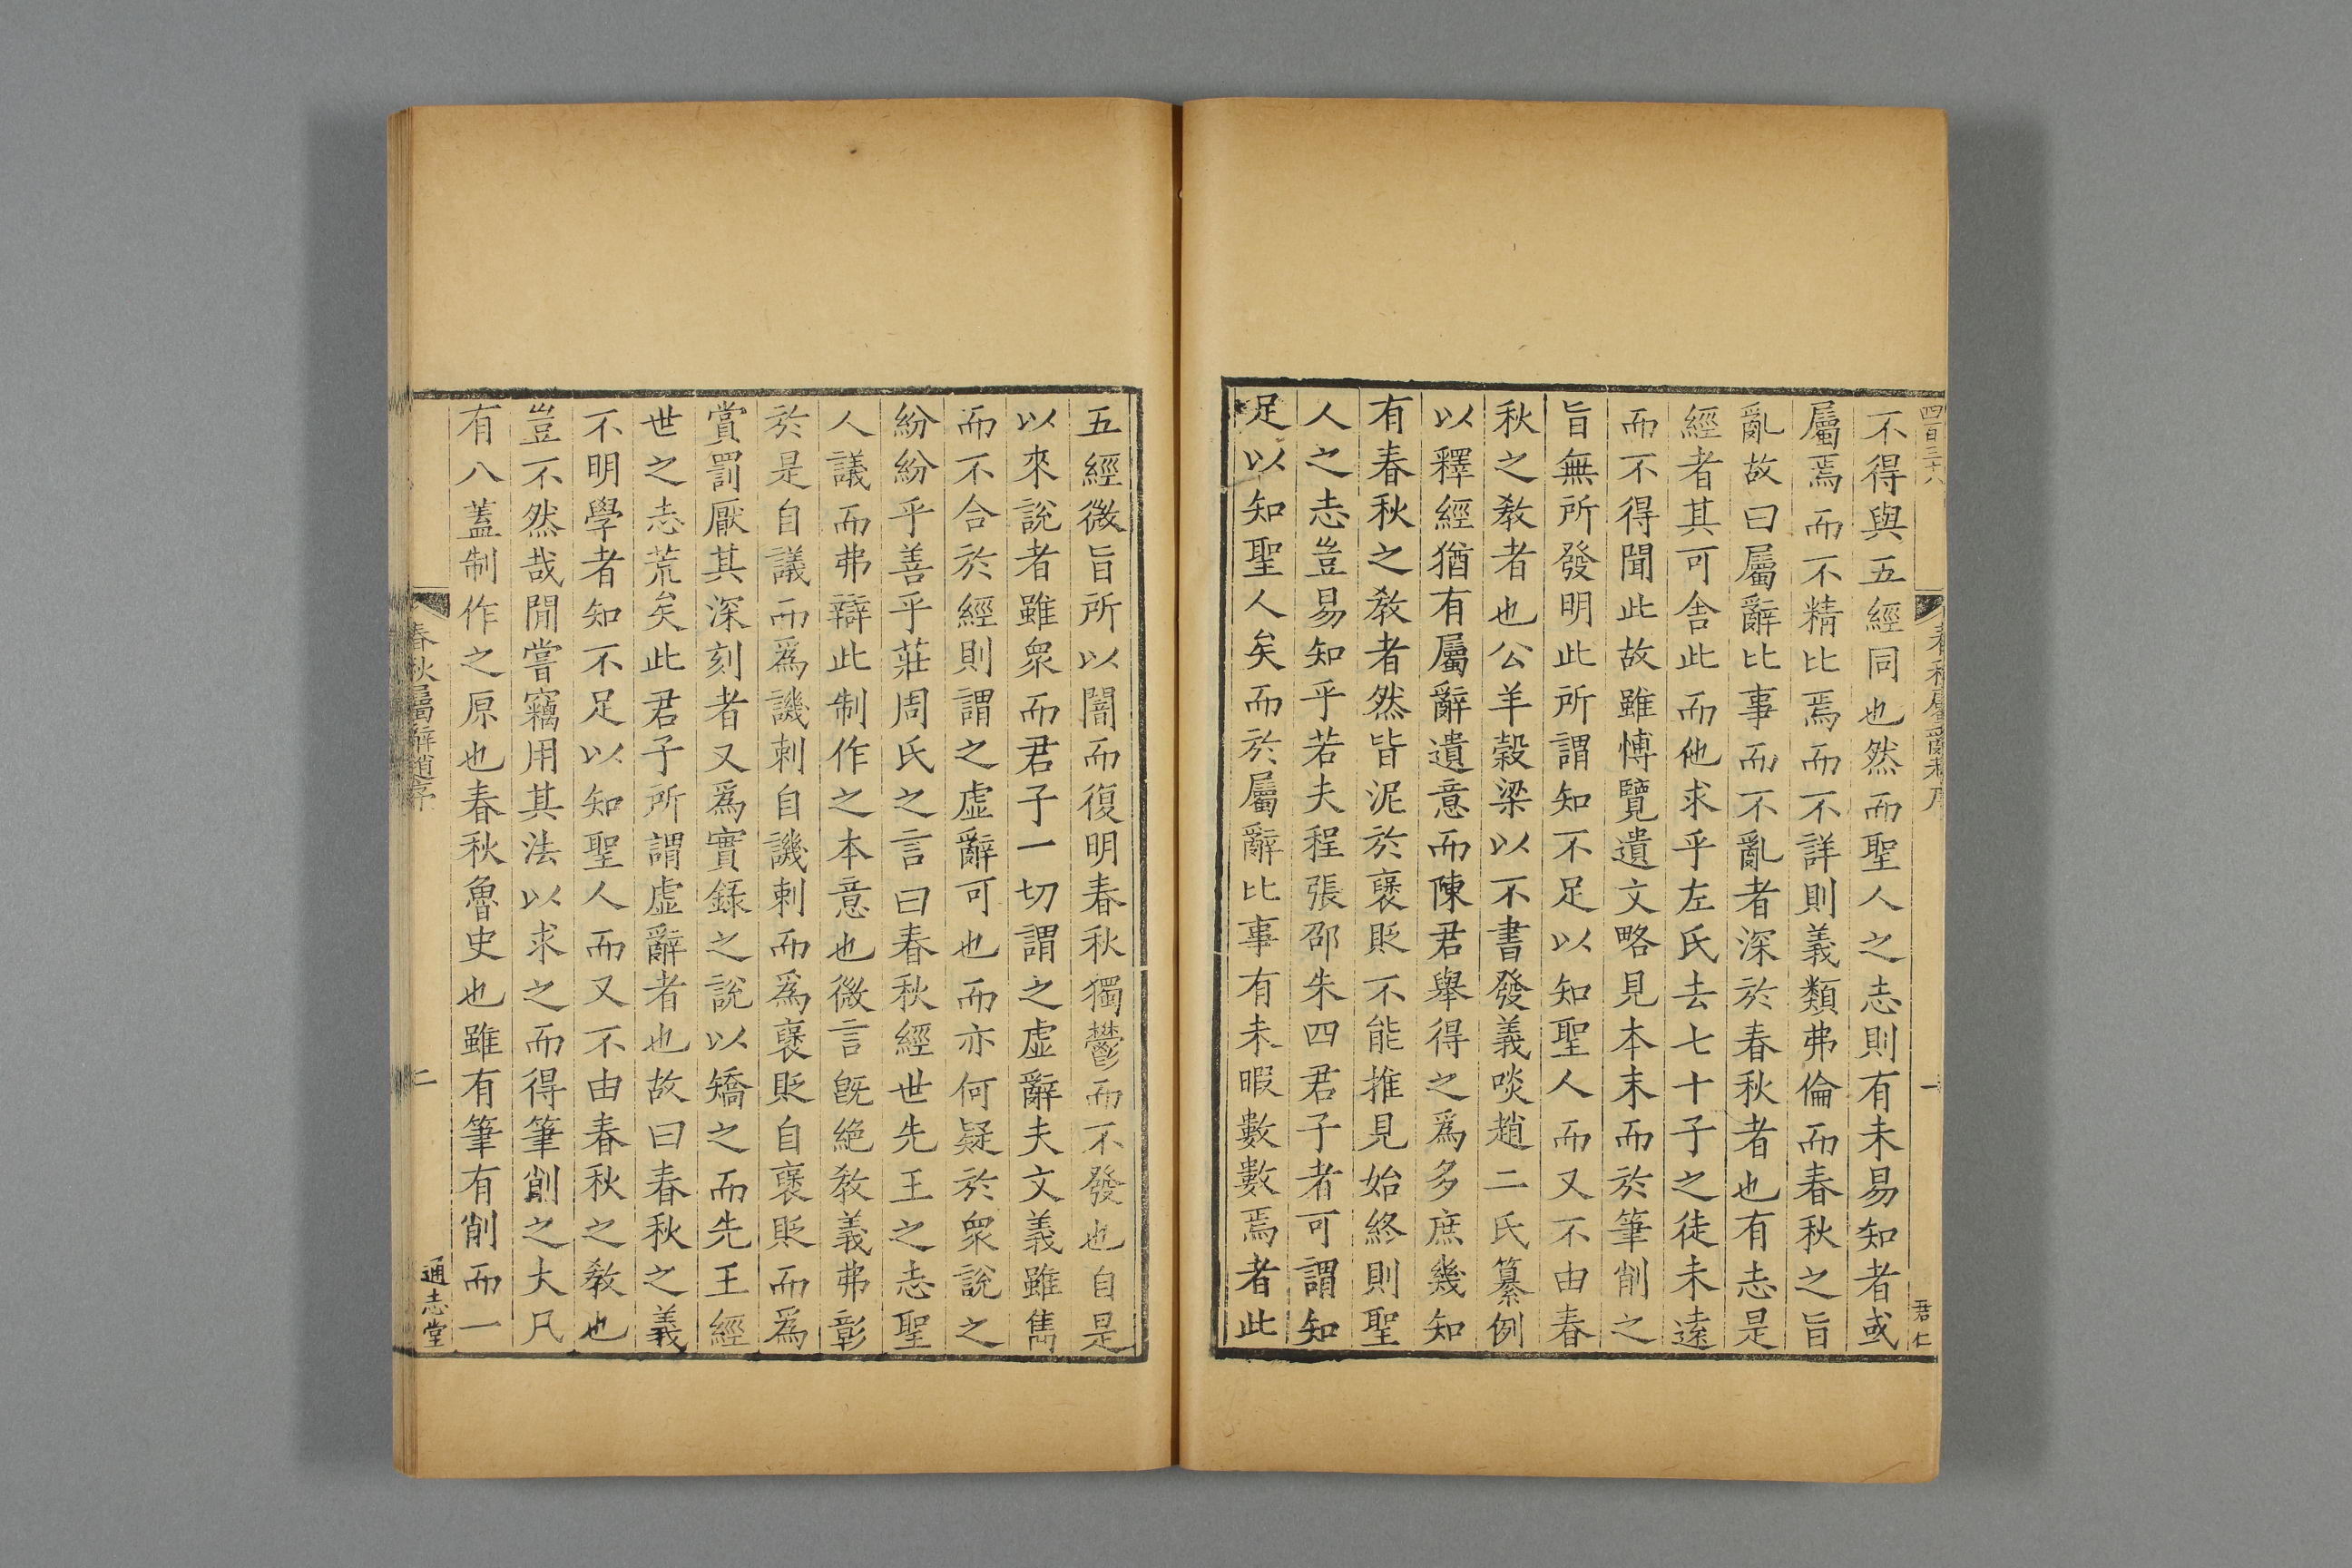 四百三十八
不得與五經同也然而聖人之志則有未易知者或
屬焉而不精比焉而不詳則義類弗倫而春秋之旨
亂故曰屬辭比事而不亂者深於春秋者也有志是
經者其可舍此而他求乎左氏去七十子之徒未遠
而不得聞此故雖博覽遺文略見本末而於筆削之
旨無所發明此所謂知不足以知聖人而又不由春
秋之敎者也公羊榖梁以不書發義啖趙二氏纂例
以釋經猶有屬辭遺意而陳君舉得之爲多庶幾知
有春秋之敎者然皆泥於襃貶不能推見始終則聖
人之志豈易知乎若夫程張邵朱四君子者可謂知
足以知聖人矣而於屬辭比事有未暇數數焉者此
五經微旨所以闇而復明春秋獨鬱而不發也自是
以來說者雖衆而君子一切謂之虛辭夫文義雖雋
而不合於經則謂之虛辭可也而亦何疑於衆說之
紛紛乎善乎莊周氏之言曰春秋經世先王之志聖
人議而弗辯此制作之本意也微言旣絶敎義弗彰
於是自議而爲譏刺自譏刺而爲襃貶自襃貶而爲
賞罰厭其深刻者又爲實錄之說以矯之而先王經
世之志荒矣此君子所謂虛辭者也故曰春秋之義
不明學者知不足以知聖人而又不由春秋之敎也
豈不然哉閒嘗竊用其法以求之而得筆削之大凡
有八蓋制作之原也春秋魯史也雖有筆有削而一
春秋屬辭趙序
二
通志堂